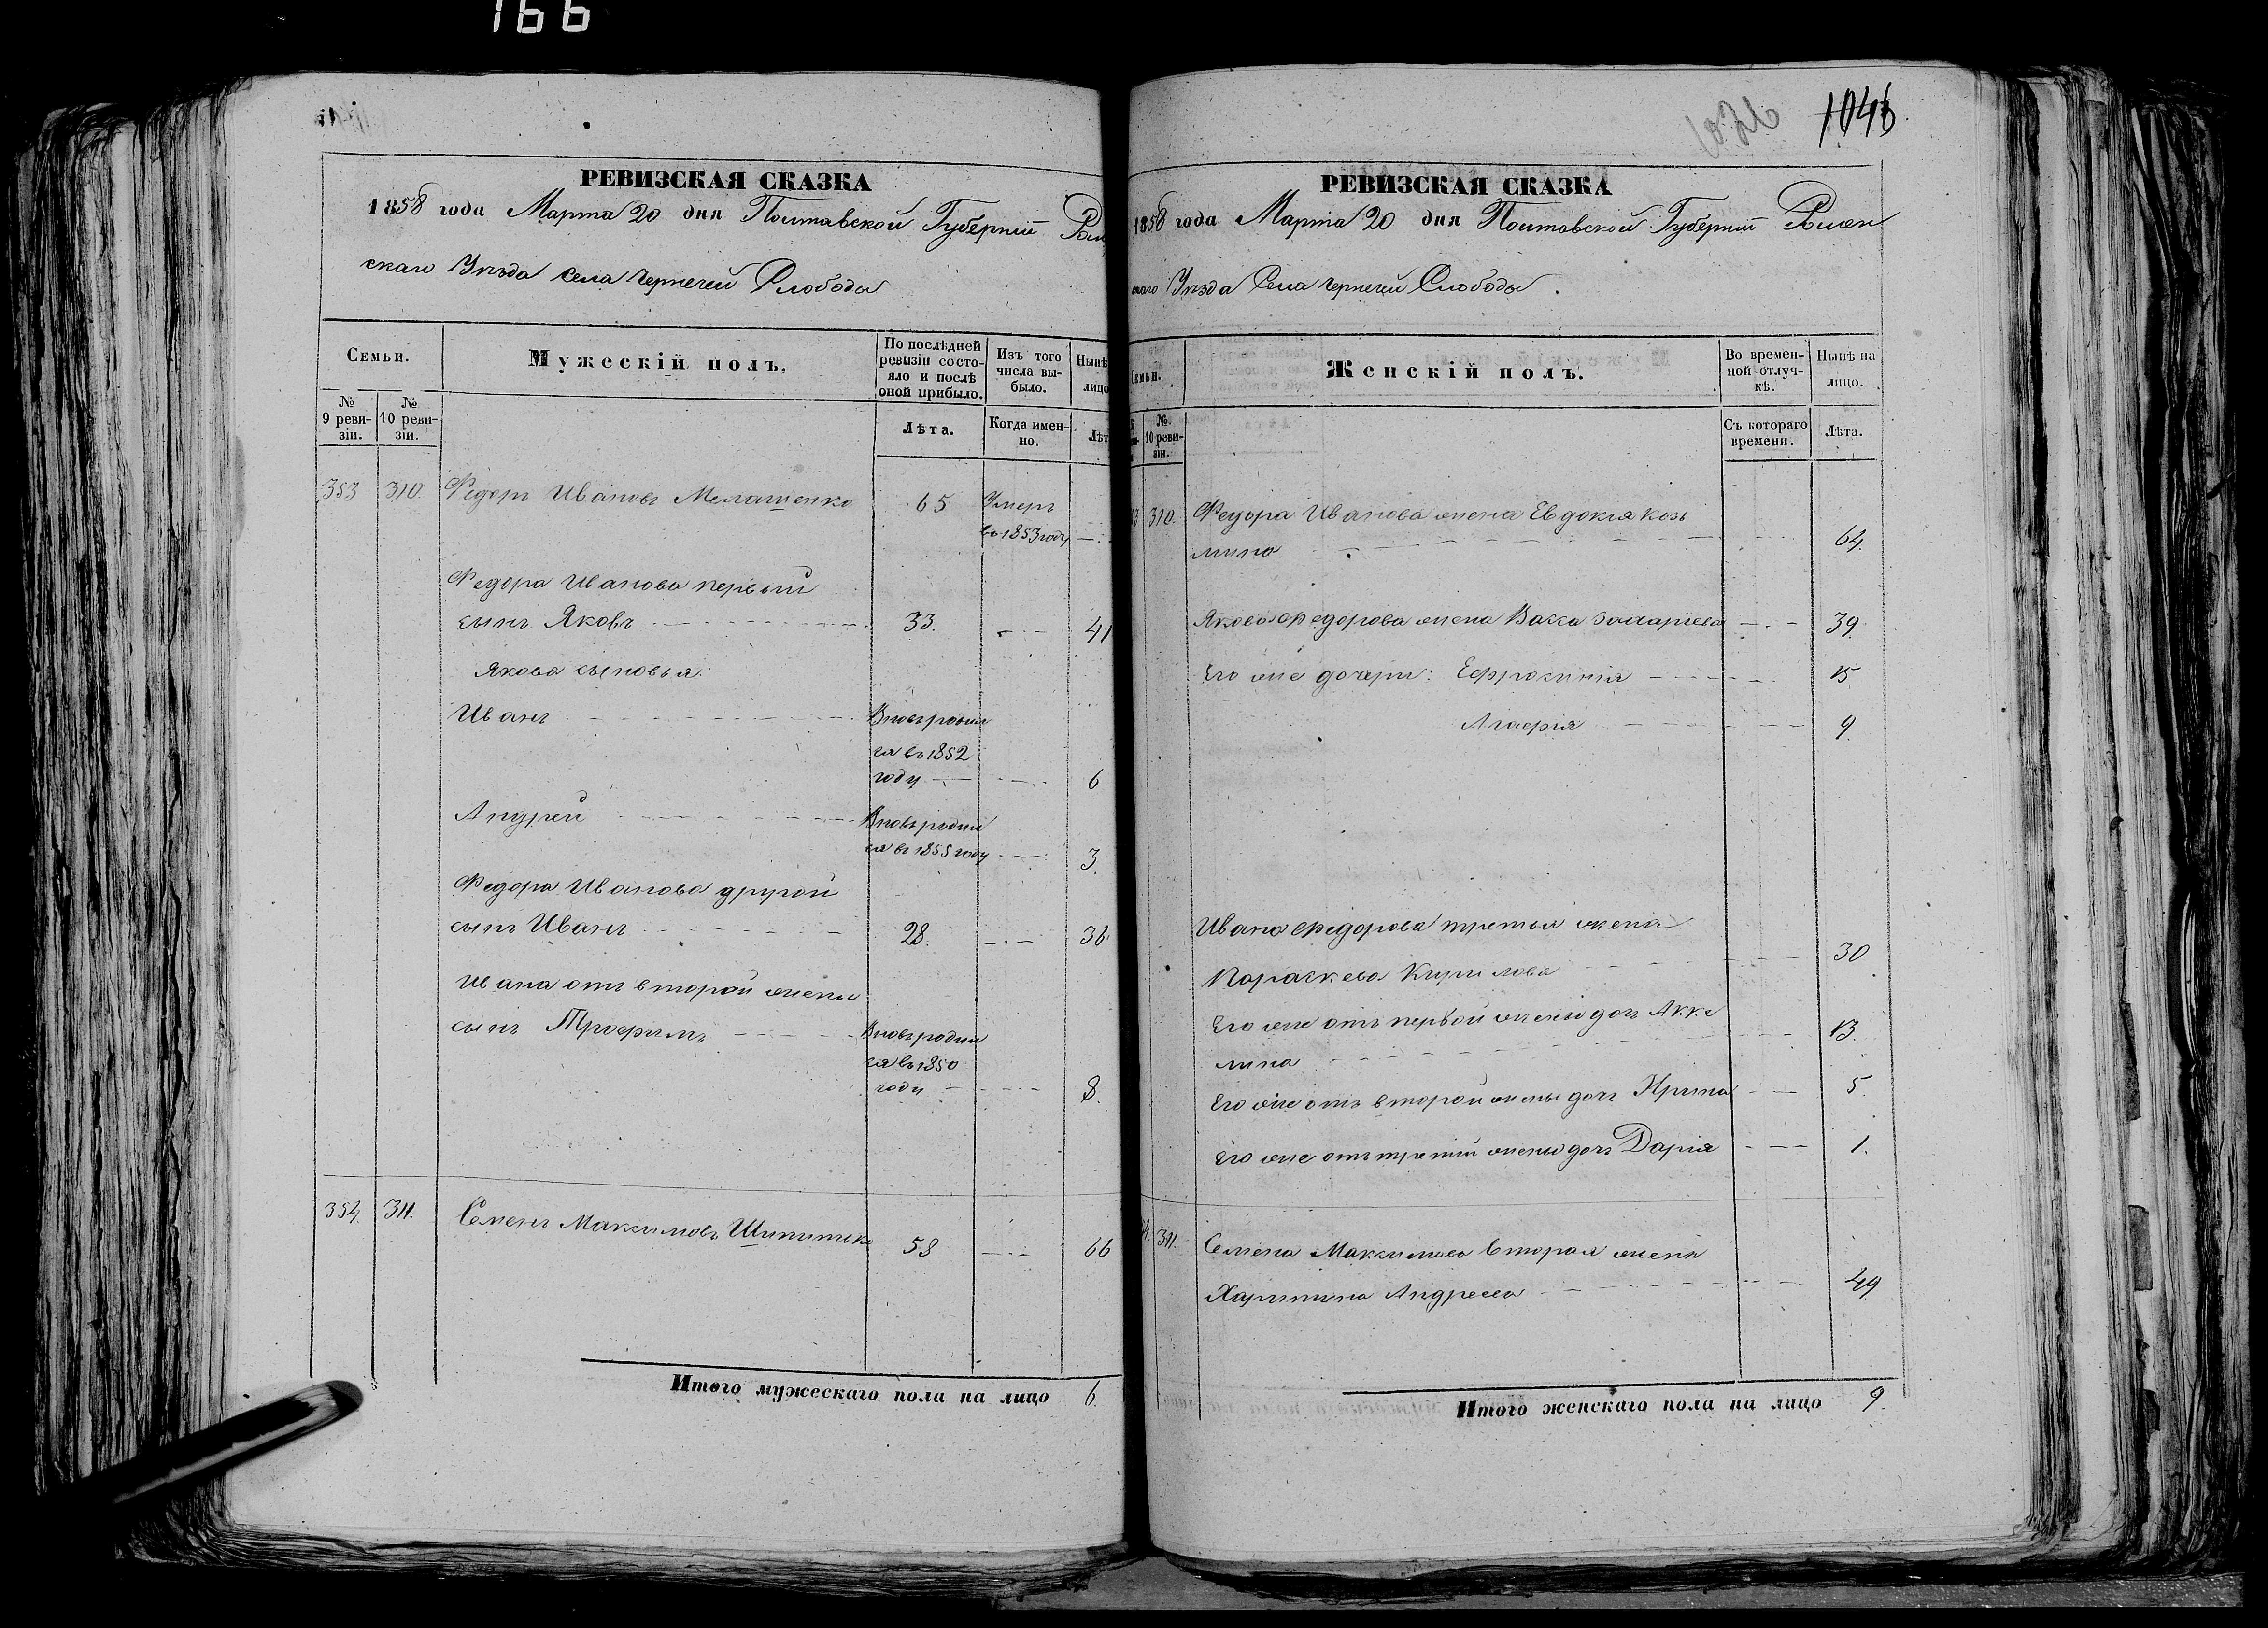 166
РЕВИЗСКАЯ СКАЗКА
1858 года Марта 20 дня Полтавской Губерніи Ром
скаго Уѣзда Села Чернечей Слободы
Семьи.
Мужескій полъ.
По послѣдней
ревизіи состо-
яло и послѣ
оной прибыло.
Изъ того
числа вы-
было.
Нынѣ
лицо
№
9 реви-
зіи.
№
10 реви-
зіи.
Лѣта.
Когда имен-
но.
Лѣт
353 310. Федоръ Ивановъ Мелашенко 65 Умеръ
въ 1853 году
Федора Иванова первый
сынъ Яковъ 33. 41
Якова сыновья:
Иванъ Вновь родил
ся въ 1852
году 6
Андрей Вновь родил
ся въ 1855 году 3.
Федора Иванова другой
сынъ Иванъ 28. 36
Ивана отъ второй жены
сынъ Трофимъ Вновь родил
ся въ 1850
году 8.
354. 311. Семенъ Максимовъ 58 66
Итого мужескаго пола на лицо 6.
1046
РЕВИЗСКАЯ СКАЗКА
1858 года Марта 20 дня Полтавской Губерніи Ромен
скаго Уѣзда Села Чернечей Слободы.
Семьи.
Женскій полъ.
Во времен-
ной отлуч-
кѣ.
Нынѣ на
лицо.
№
10 реви-
зіи.
Съ котораго
времени.
Лѣта.
3 310. Федора Иванова жена Евдокія Козь
мина 64.
Якова Федорова жена Васса Захарiева 39.
Его же дочери: Ефросинія 15
Агафія 9.
Ивана Федорова третья жена
Параскева Кирилова 30
Его же отъ первой жены дочь Аки
лина 13.
Его же отъ второй жены дочь Ирина 5.
Его же отъ третій жены дочь Дарія 1.
4. 311. Семена Максимова вторая жена
Харитина Андреева 49
Итого женскаго пола на лицо 9.